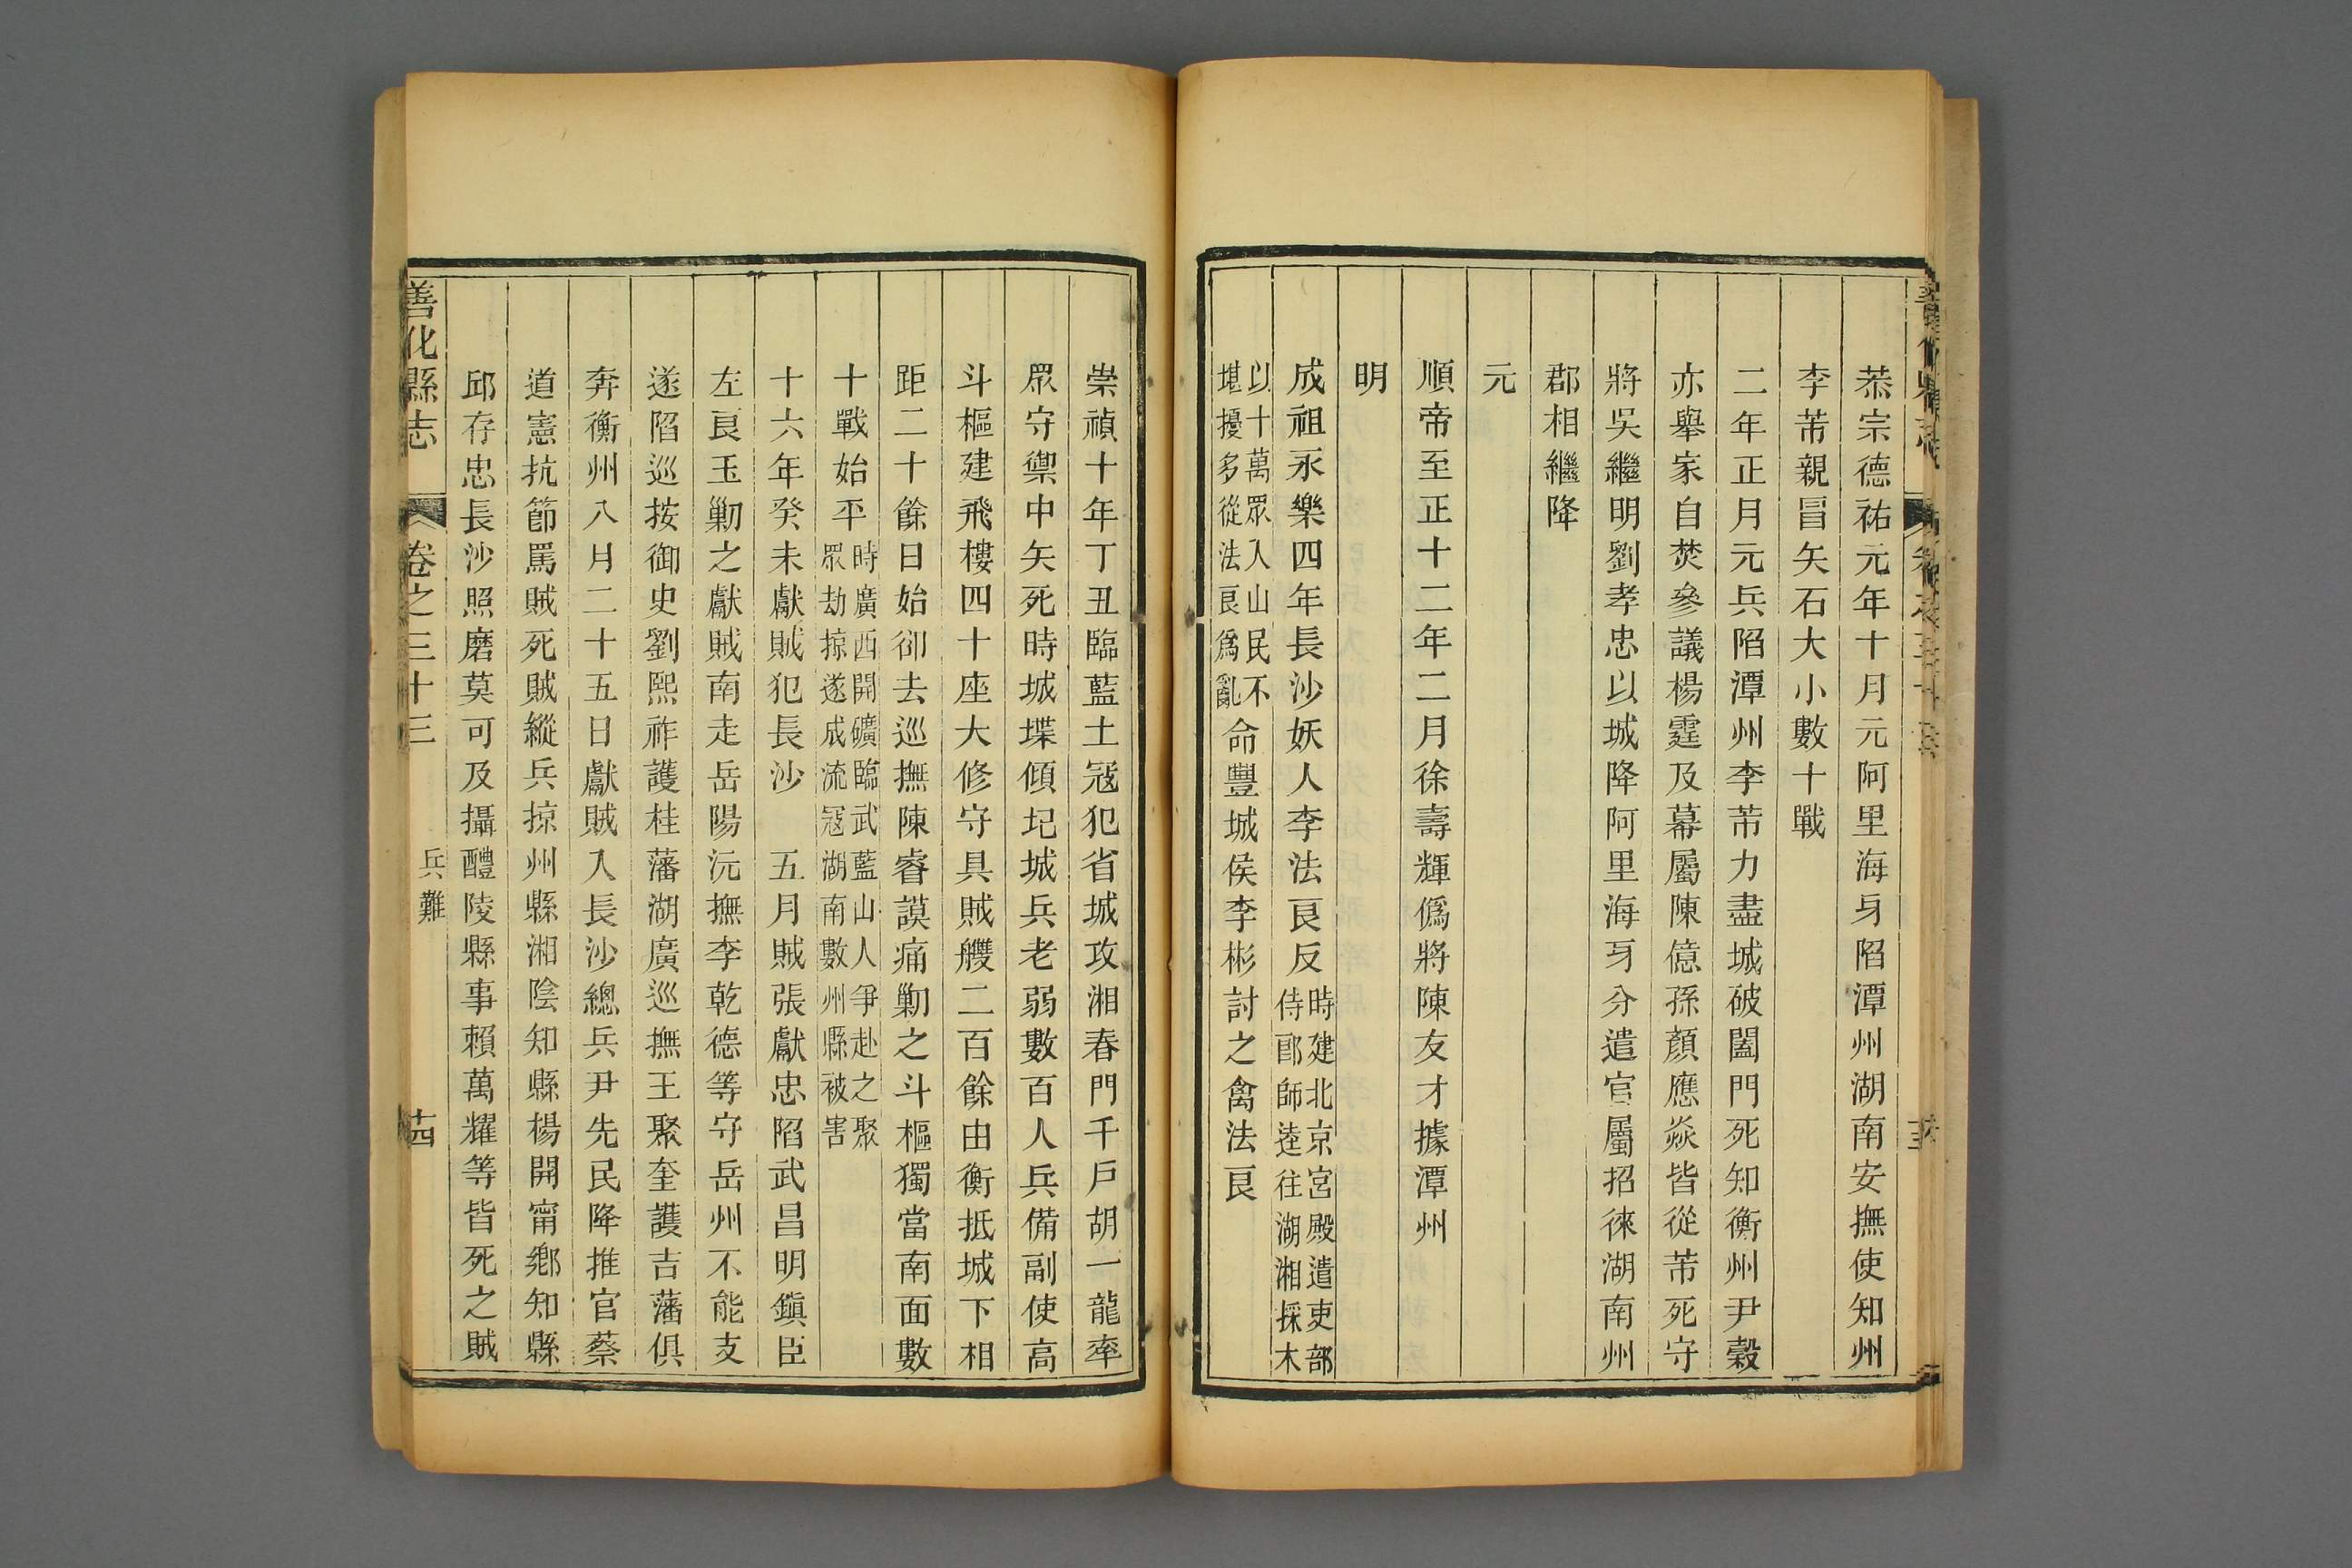 恭宗德祐元年十月元阿里海身陷潭州湖南安撫使知州
李芾親冒矢石大小數十戰
二年正月元兵陷潭州李芾力盡城破闔門死知衡州尹穀
亦舉家自焚參議楊霆及幕屬陳億孫顏應焱皆從芾死守
將吳繼明劉孝忠以城降阿里海牙分遣官屬招徠湖南州
郡相繼降
元
順帝至正十二年二月徐壽輝僞將陳友才據潭州
明
成祖永樂四年長沙妖人李法良反時建北京宮殿遣吏部侍郎師逵往湖湘採木
以十萬眾入山民不堪擾多從法良爲亂命豐城侯李彬討之禽法良
崇禎十年丁丑臨藍土寇犯省城攻湘春門千戶胡一龍率
眾守禦中矢死時城堞傾圮城兵老弱數百人兵備副使高
斗樞建飛樓四十座大修守具賊艘二百餘由衡抵城下相
距二十餘日始卻去巡撫陳睿謨痛剿之斗樞獨當南面數
十戰始平時廣西開礦臨武藍山人爭赴之聚眾劫掠遂成流寇湖南數州縣被害
十六年癸未獻賊犯長沙　五月賊張獻忠陷武昌明鎭臣
左良玉剿之獻賊南走岳陽沅撫李乾德等守岳州不能支
遂陷巡按御史劉熙祚護桂藩湖廣巡撫王聚奎護吉藩俱
奔衡州八月二十五日獻賊入長沙總兵尹先民降推官蔡
道憲抗節罵賊死賊縱兵掠州縣湘陰知縣楊開甯鄉知縣
邱存忠長沙照磨莫可及攝醴陵縣事賴萬耀等皆死之賊
善化縣志　卷之三十三　兵難　十四